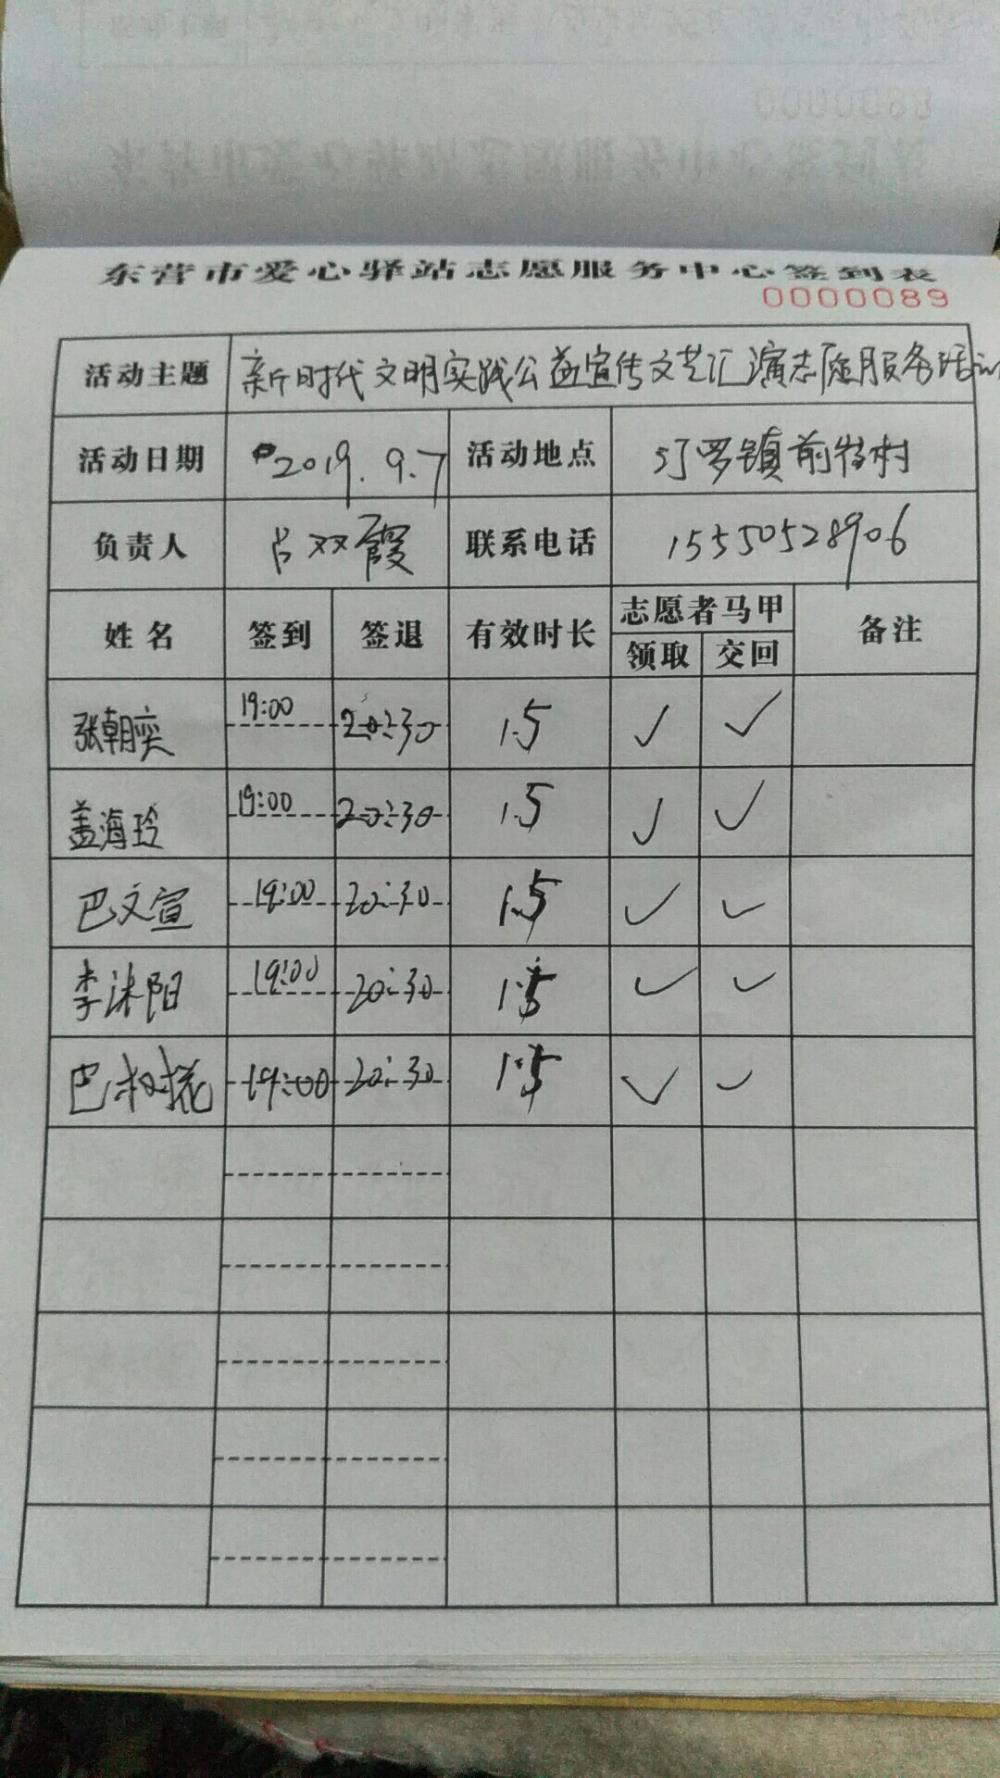 东营市爱心驿站志愿服务中心签到表
0000089
活动主题 新时代文明实践公益宣传文艺汇演志愿服务活动
活动日期 2019.9.7 活动地点 汀罗镇前牧村
负责人 吕双霞 联系电话 15550528906
姓名 签到 签退 有效时长 志愿者马甲 备注
领取 交回
张朝奕 19:00 20:30 1.5 ✓ ✓
盖海玲 19:00 20:30 1.5 ✓ ✓
巴文宣 19:00 20:30 1.5 ✓ ✓
李沐阳 19:00 20:30 1.5 ✓ ✓
巴 19:00 20:30 1.5 ✓ ✓